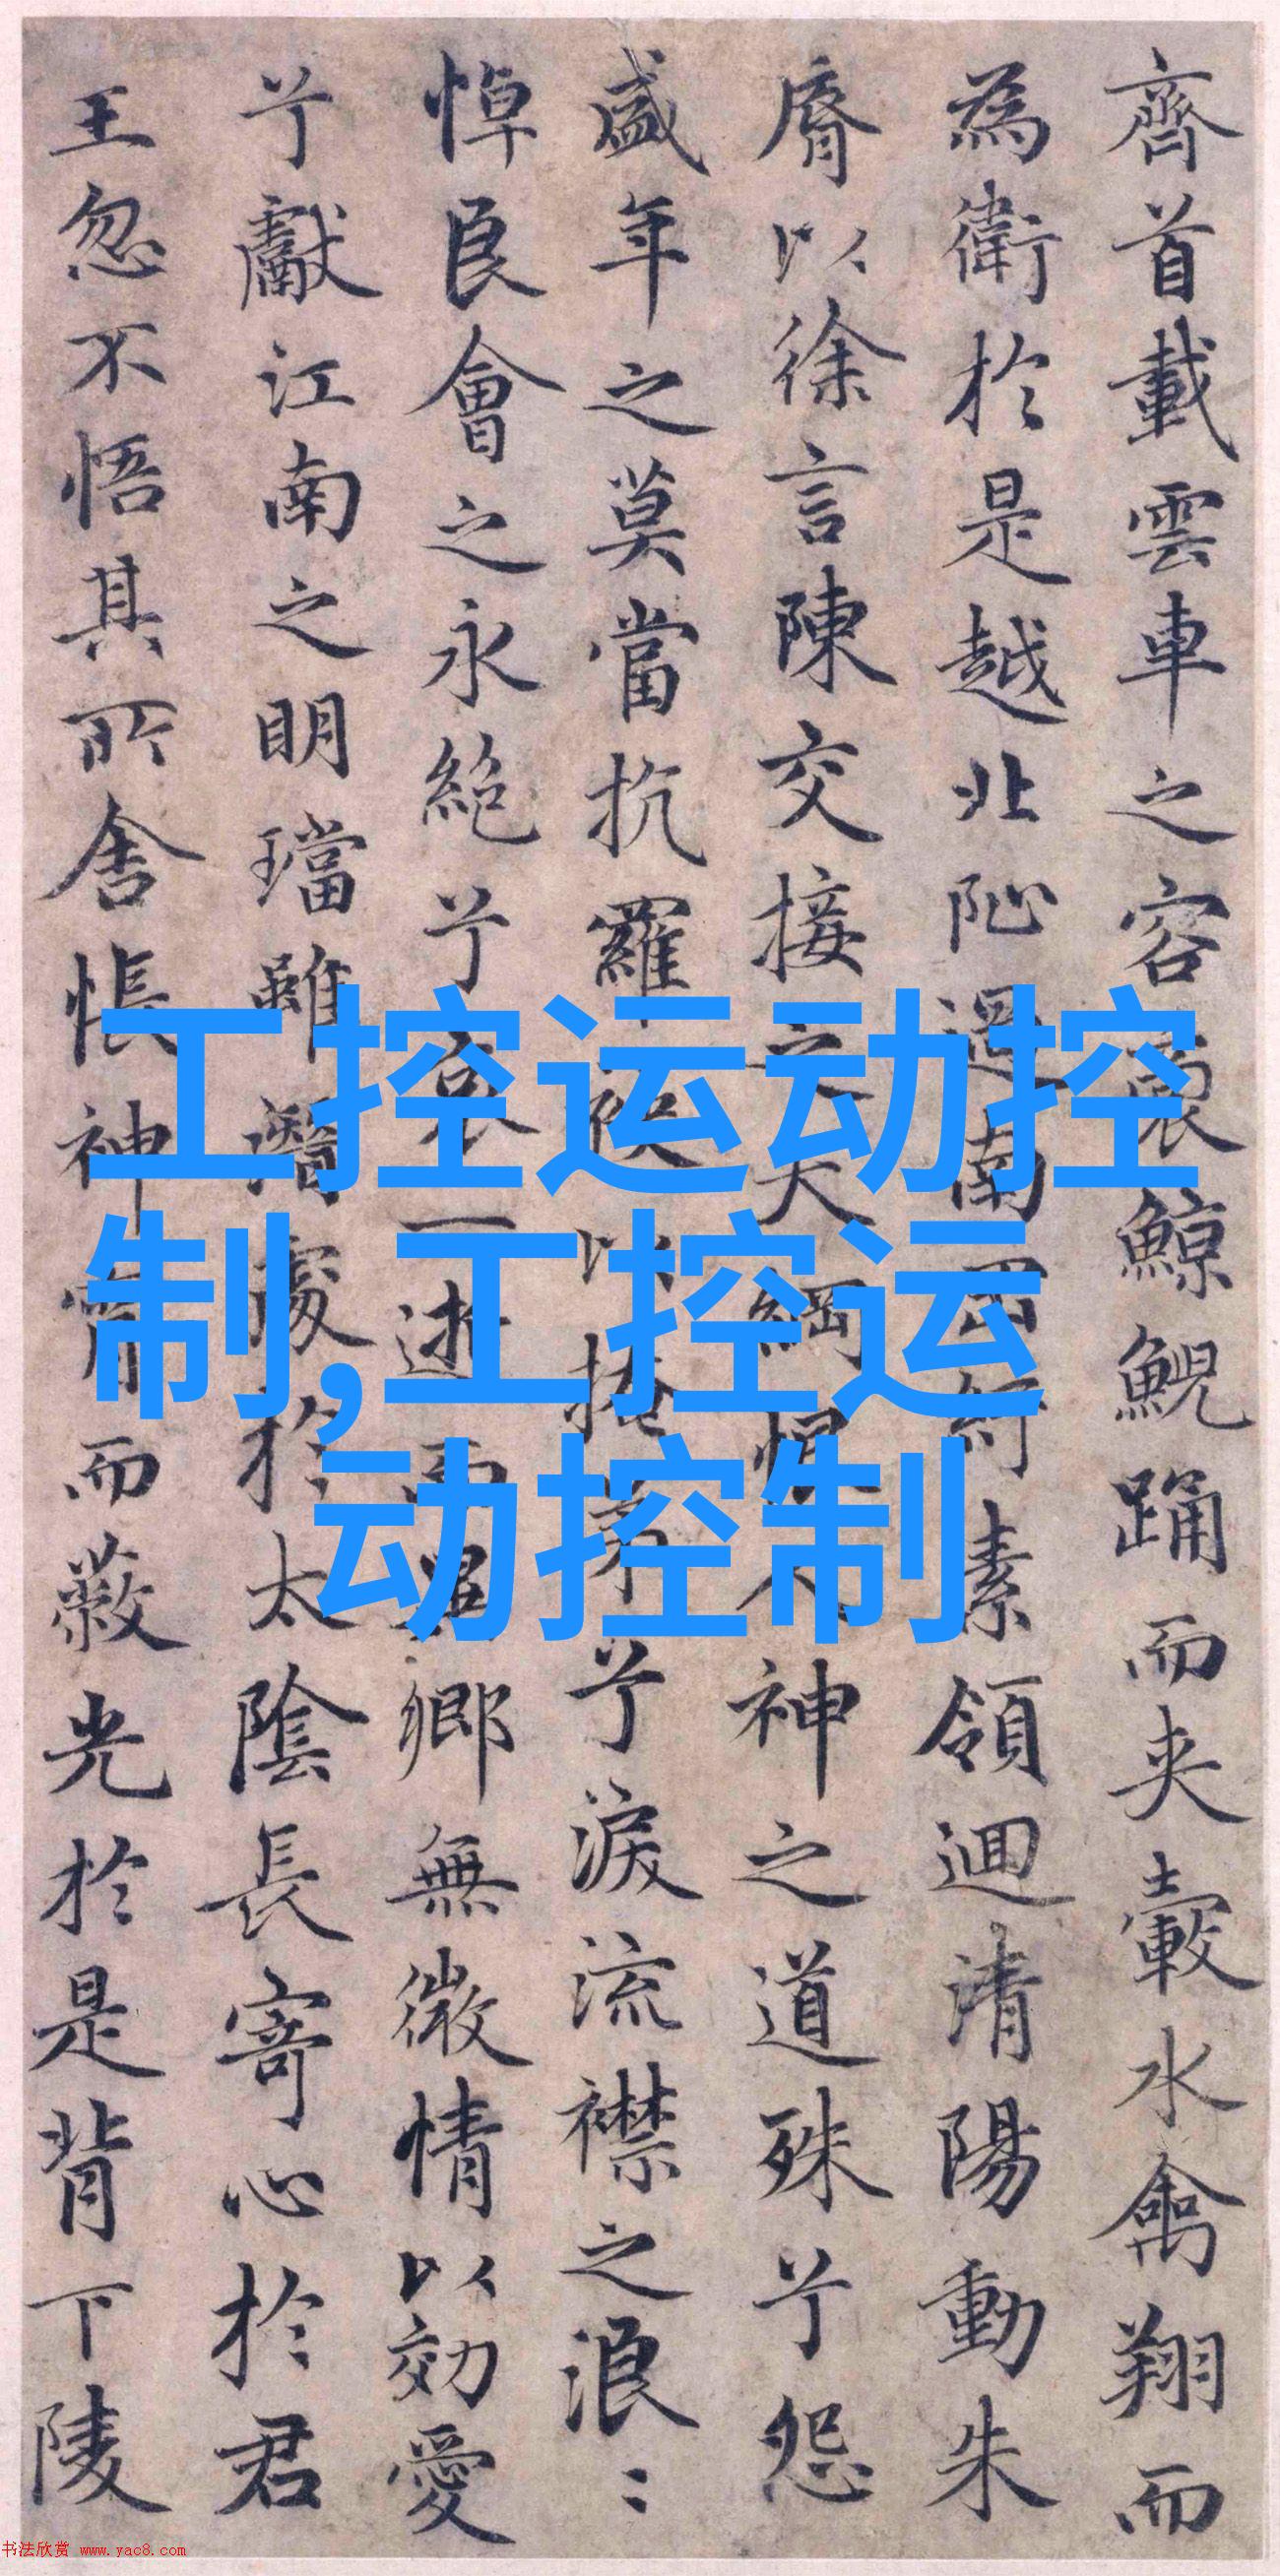 齊首載雲車之容裔鯨鯢踊而夾轂水禽翔而
為衛於是越北阯過南岡紆素領迴清陽動朱
脣以徐言陳交接之大綱恨人神之道殊兮怨
盛年之莫當抗羅袂以掩涕兮淚流襟之浪〻
悼良會之永絕兮哀一逝而異鄉無微情以効愛
兮獻江南之明璫雖潛處於太陰長寄心於君
王忽不悟其所舍悵神宵而蔽光於是背下陵
工控运动控
制,工控运
动控制
书法欣赏 www.yac8.com